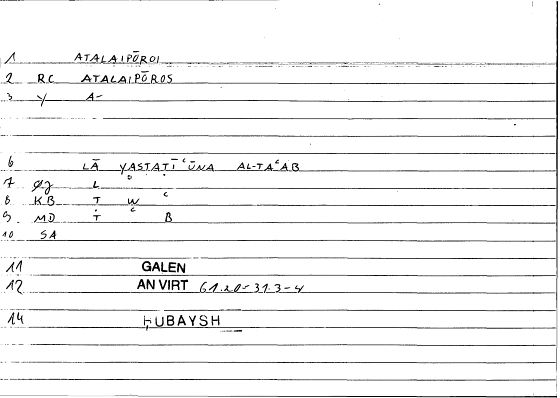 1 ATALAIPŌROI
2 RC ATALAIPŌROS
3 Y A-
6 LĀ YASTAṬĪʿŪNA AL-TAʿAB
7 L
8 KB T W ʿ
9 MD Ṭ ʿ B
10 SA
11 GALEN
12 AN VIRT 61.20-31.3-4
14 ḤUBAYSH